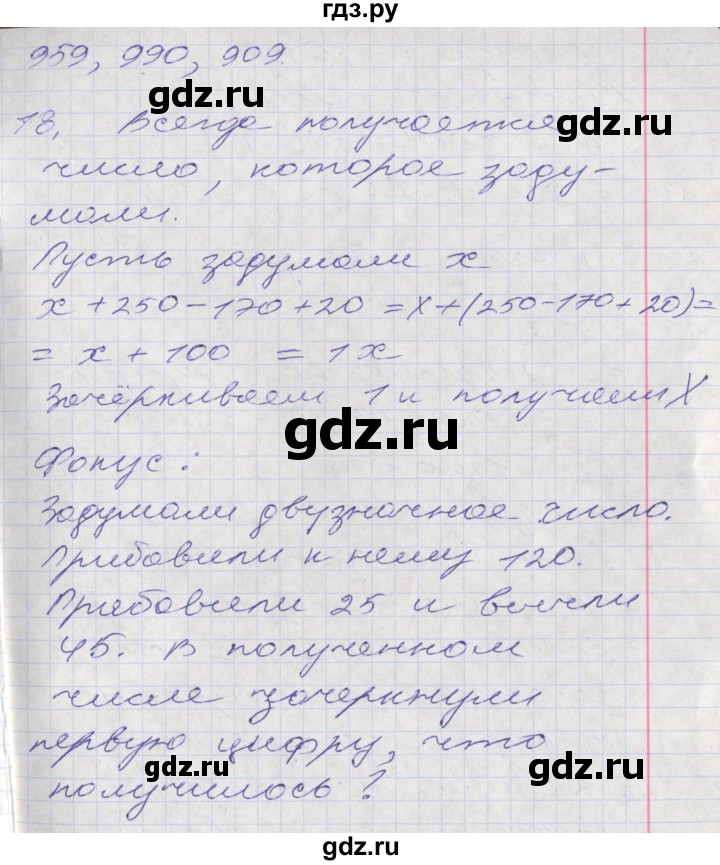 гдз.ру
959, 990, 909.
gdz.ru gdz.ru
18, Всегда получается
число, которое заду-
мали.
Пусть задумали x
x + 250 - 170 + 20 = x + (250 - 170 + 20) =
= x + 100 = 1x
Зачёркиваем 1 и получаем X
gdz.ru
Фокус:
Задумали двузначное число.
Прибавили к нему 120.
Прибавили 25 и вычли
45. В полученном
числе зачеркнули
первую цифру, что
gdz.ru gdz.ru
получилось?
gdz.ru